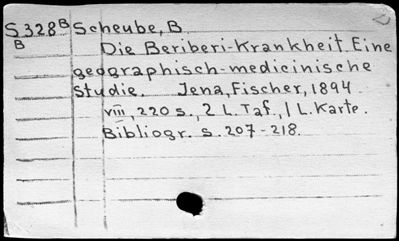 S 328 B Scheube, B
B
Die Beriberi-Krankheit Eine
geographisch-medicinische
Studie. Jena, Fischer, 1894
VIII, 220 s., 2 L. Taf., 1 L. Karte.
Bibliogr. s. 207-218.